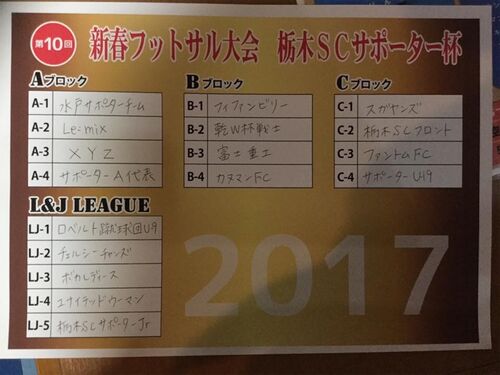 第10回
新春フットサル大会 栃木SCサポーター杯
Aブロック
A-1 水戸サポーターチーム
A-2 Le:mix
A-3 XYZ
A-4 サポーターA代表
Bブロック
B-1 フィファンビリー
B-2 乾W杯戦士
B-3 富士重工
B-4 カヌマンFC
Cブロック
C-1 スガヤンズ
C-2 栃木SCフロント
C-3 ファントムFC
C-4 サポーターU-19
L&J LEAGUE
LJ-1 ロベルト蹴球団U9
LJ-2 チェルシーチャンズ
LJ-3 ボカレディース
LJ-4 ユナイテッドウーマン
LJ-5 栃木SCサポーターJr
2017